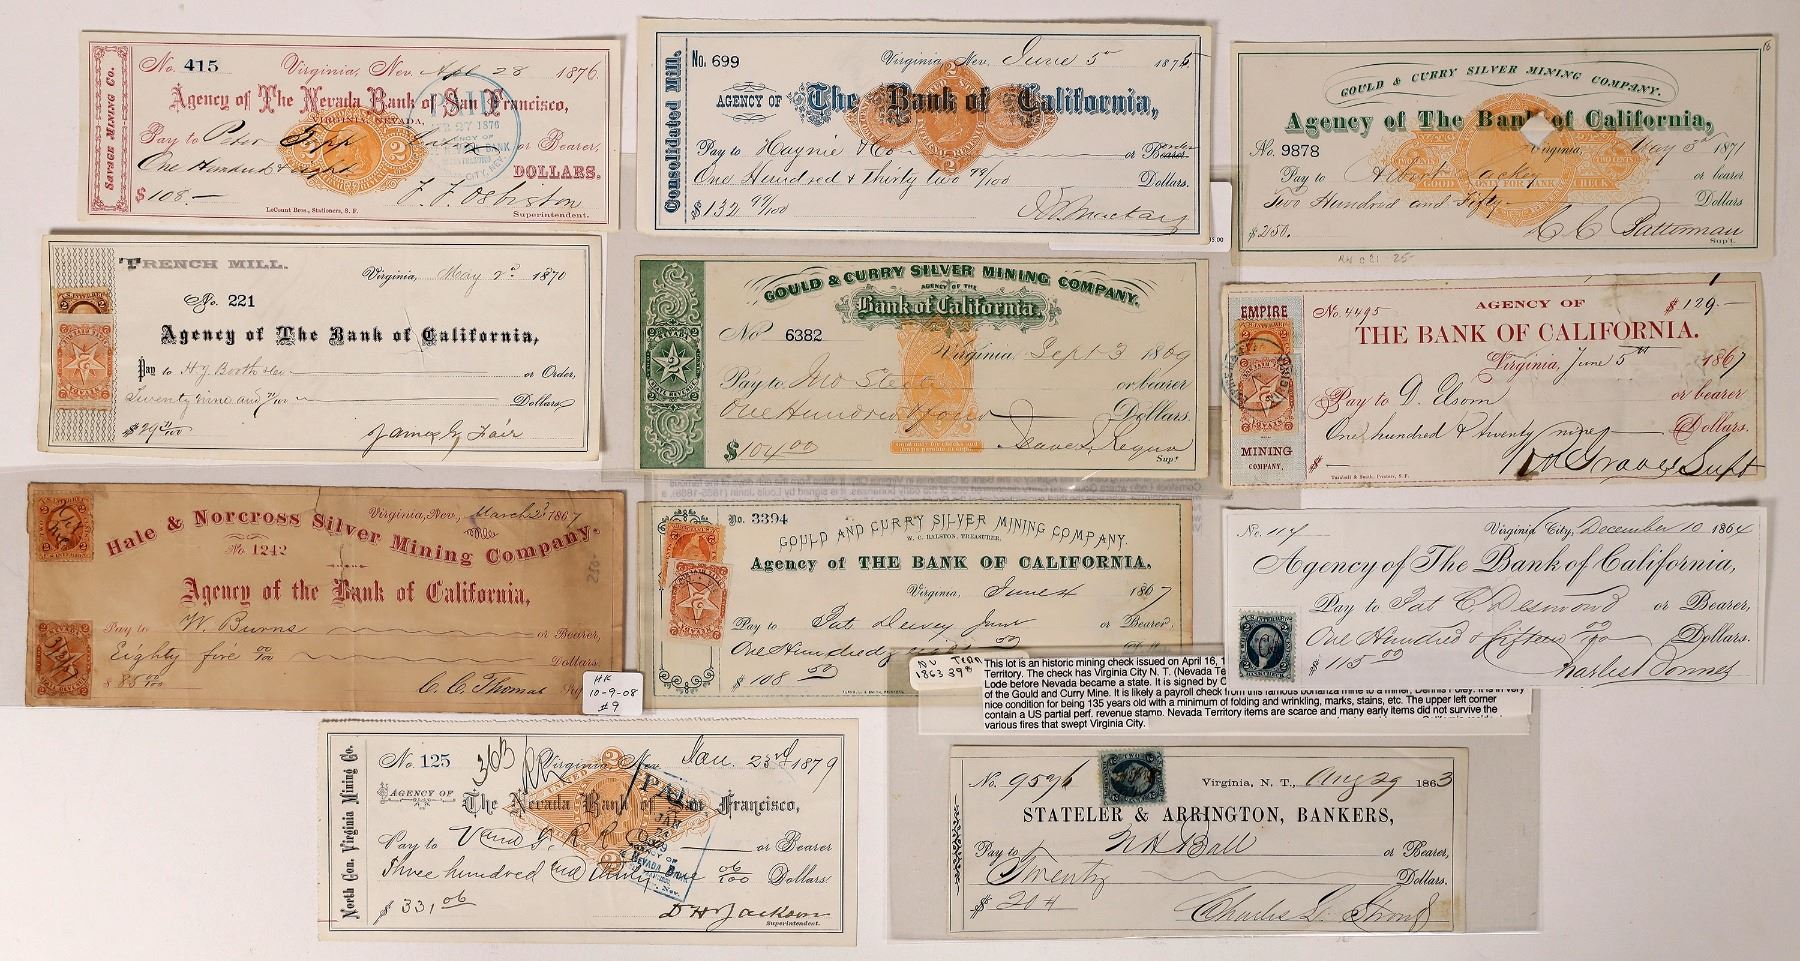 SAVAGE MINING CO.
No. 415 Virginia, Nev. Apl 28 1876.
Agency of The Nevada Bank of San Francisco,
VIRGINIA, NEVADA,
Pay to Peter or Bearer,
One Hundred & eight DOLLARS.
$ 108.—
LeCount Bros., Stationers, S. F.
Superintendent.
PAID
1876
Consolidated Mill.
No. 699 Virginia, Nev. June 5th 1875
AGENCY OF The Bank of California,
Pay to Haynie & Co or Bearer order
One Hundred & Thirty two 99/100 Dollars.
$ 132 99/100
GOULD & CURRY SILVER MINING COMPANY.
Agency of The Bank of California,
No. 9878 Virginia, May 5th 1871
Pay to Albert Lackey or bearer
Two Hundred and Fifty Dollars
$ 250.
Sup't.
TWO CENTS
GOOD ONLY FOR BANK CHECK
FRENCH MILL.
Virginia, May 2d 1870
No. 221
Agency of The Bank of California,
Pay to H J Booth or Order,
Twenty nine and Dollars
James G Fair
GOULD & CURRY SILVER MINING COMPANY.
AGENCY OF THE
Bank of California.
No 6382
Virginia Sept 3 1869
Pay to Jno or bearer
One Hundred & four Dollars
$ 104.00
Sup't
EMPIRE
MINING
COMPANY,
No. 4495 AGENCY OF $ 129.—
THE BANK OF CALIFORNIA.
Virginia, June 5th 1867
Pay to D. Elsom or bearer
One hundred & twenty nine Dollars.
Supt
Turnbull & Smith, Printers, S. F.
Virginia, Nev., March 23 1867
Hale & Norcross Silver Mining Company.
No. 1242
Agency of the Bank of California,
Pay to W. Burns or Bearer,
Eighty five 00/100 Dollars
$ 85 00/100 C. C. Thomas
HK
10-9-08
#9
No. 3394
GOULD AND CURRY SILVER MINING COMPANY.
W. C. RALSTON, TREASURER.
Agency of THE BANK OF CALIFORNIA.
Virginia, June 4 1867
Pay to Pat or Bearer
One Hundred
$ 108
No. 114 Virginia City, December 10 1864
Agency of The Bank of California,
Pay to Pat C Desmond or Bearer,
One Hundred & fifteen 00/100 Dollars.
$ 115 00
Charles Bonner
NV Terr
1863
This lot is an historic mining check issued on April 16, 1
Territory. The check has Virginia City N. T. (Nevada Te
Lode before Nevada became a state. It is signed by C
of the Gould and Curry Mine. It is likely a payroll check from this famous bonanza mine to a miner,
nice condition for being 135 years old with a minimum of folding and wrinkling, marks, stains, etc. The upper left corner
contain a US partial perf. revenue stamp. Nevada Territory items are scarce and many early items did not survive the
various fires that swept Virginia City.
North Con. Virginia Mining Co.
No. 125 Virginia, Nev. Jan. 23rd 1879
AGENCY OF The Nevada Bank of San Francisco,
Pay to V and T. R R Co or Bearer
Three hundred and thirty one 06/100 Dollars.
$ 331 06
D H Jackson
Superintendent.
PAID
JAN
No. 9596 Virginia, N. T., Aug 29 1863
STATELER & ARRINGTON, BANKERS,
Pay to N H Ball or Bearer,
Twenty Dollars.
$ 20
Charles L. Strong